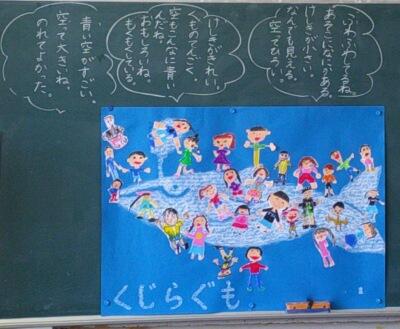 ふわふわしてるね。
あそこになにかある。
けしきが小さい。
なんでも見える。
空ってもうい。
けしきがきれい。
くものてんごく。
空もこんなに青い
んだね。
おもしろいね。
もくもくしている。
青い空がすごい。
空って大きいね。
のれてよかった。
くじらぐも